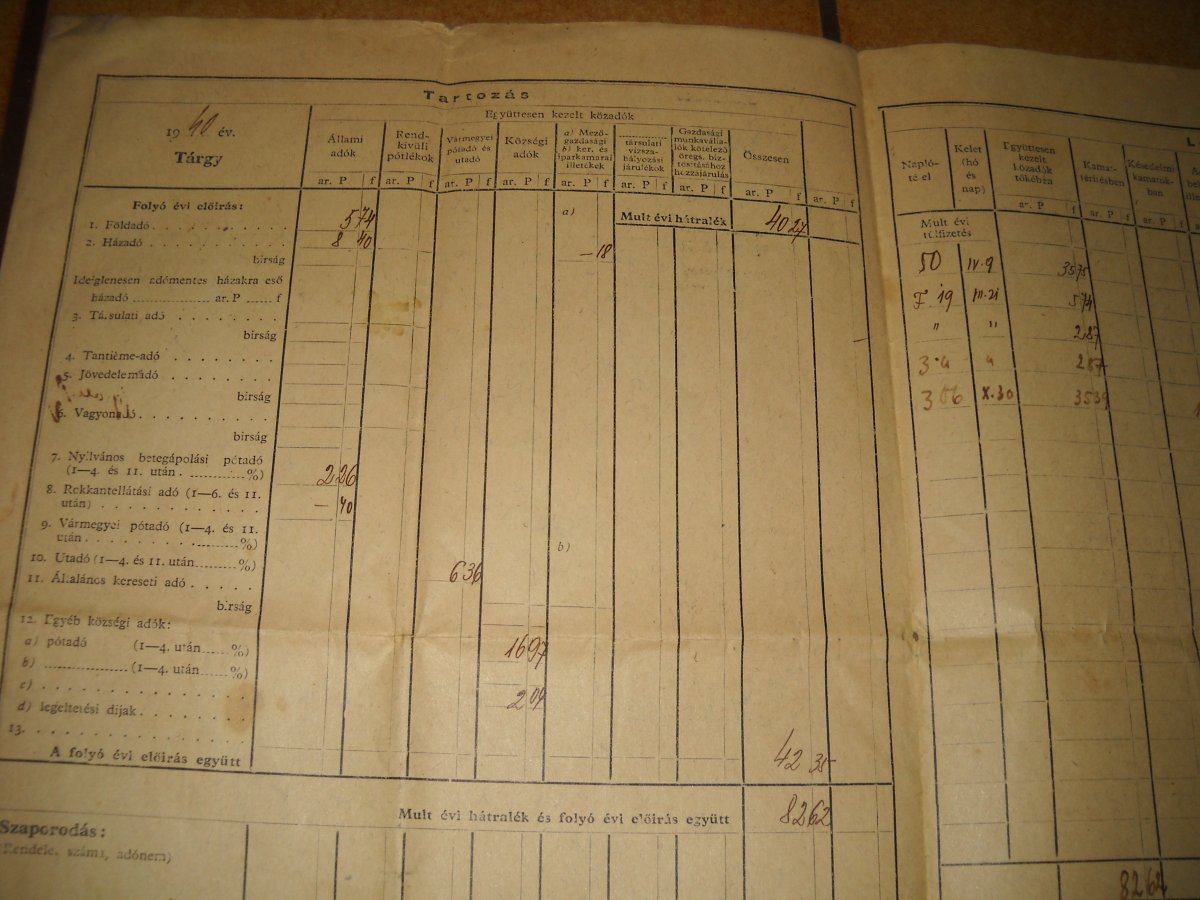 Tartozás
1940 év.
Tárgy
Együttesen kezelt közadók
Állami adók
Rendkívüli pótlékok
Vármegyei pótadó és utadó
Községi adók
a) Mezőgazdasági b) ker. és iparkamarai illetékek
társulati vízszabályozási járulékok
Gazdasági munkavállalók kötelező öregs. biztosításához hozzájárulás
Összesen
ar. P f ar. P f ar. P f ar. P f ar. P f ar. P f ar. P f ar. P f ar. P f
Folyó évi előirás:
a)
Mult évi hátralék 40 27
1. Földadó 5 74
2. Házadó 8 40
birság
— 18
Ideiglenesen adómentes házakra eső
házadó ar. P f
3. Társulati adó
birság
4. Tantième-adó
5. Jövedelemadó
birság
6. Vagyonadó
birság
7. Nyilvános betegápolási pótadó
(1—4. és 11. után %) 2 26
8. Rokkantellátási adó (1—6. és 11.
után) — 40
9. Vármegyei pótadó (1—4. és 11.
után %)
b)
10. Utadó (1—4. és 11. után %) 6 36
11. Általános kereseti adó
birság
12. Egyéb községi adók:
a) pótadó (1—4. után %) 16 97
b) (1—4. után %)
c)
d) legeltetési díjak
13.
A folyó évi előirás együtt 42 35
Mult évi hátralék és folyó évi előirás együtt 82 62
Szaporodás:
(Rendele. száma, adónem)
L
Naplótétel
Kelet (hó és nap)
Együttesen kezelt közadók tőkében
Kamattérítésben
Késedelmi kamatokban
ar. P f ar. P f ar. P f
Mult évi túlfizetés
50 IV.9 35 75
F. 19 5 74
" " 2 87
2 87
306 X.30 35 39
82 62